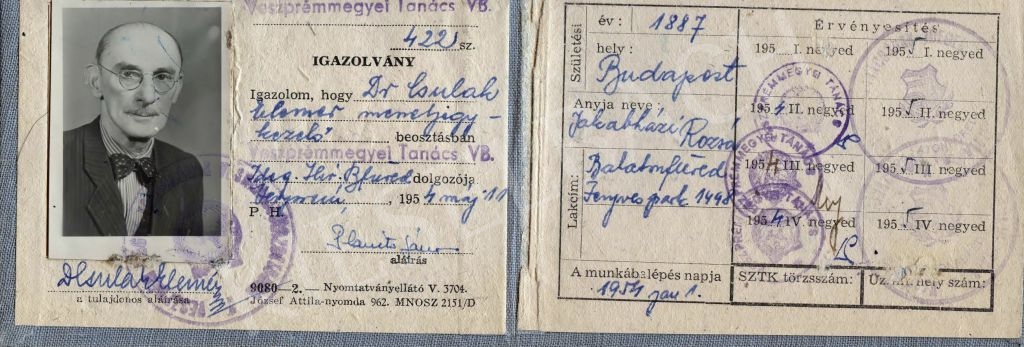 Veszprémmegyei Tanács VB.
4221 sz.
IGAZOLVÁNY
Igazolom, hogy Dr Csulak
Elemér menetjegy-
kezelő beosztásban
Veszprémmegyei Tanács VB.
Ideg. Hiv. Bfüred dolgozója
1954 máj 11
P. H.
aláírás
DCsulak Elemér
a tulajdonos aláírása
9080—2. — Nyomtatványellátó V. 3704.
József Attila-nyomda 962. MNOSZ 2151/D
Születési
év : 1887
hely :
Budapest
Anyja neve :
Jakabházi Rozsá
Lakcím :
Balatonfüred
Fenyves park 1448
A munkábalépés napja
1954 jan 1.
Érvényesítés
195 I. negyed
1955 I. negyed
1954 II. negyed
1955 II. negyed
1954 III. negyed
1955 III. negyed
1954 IV. negyed
1955 IV. negyed
SZTK törzsszám:
hely szám: